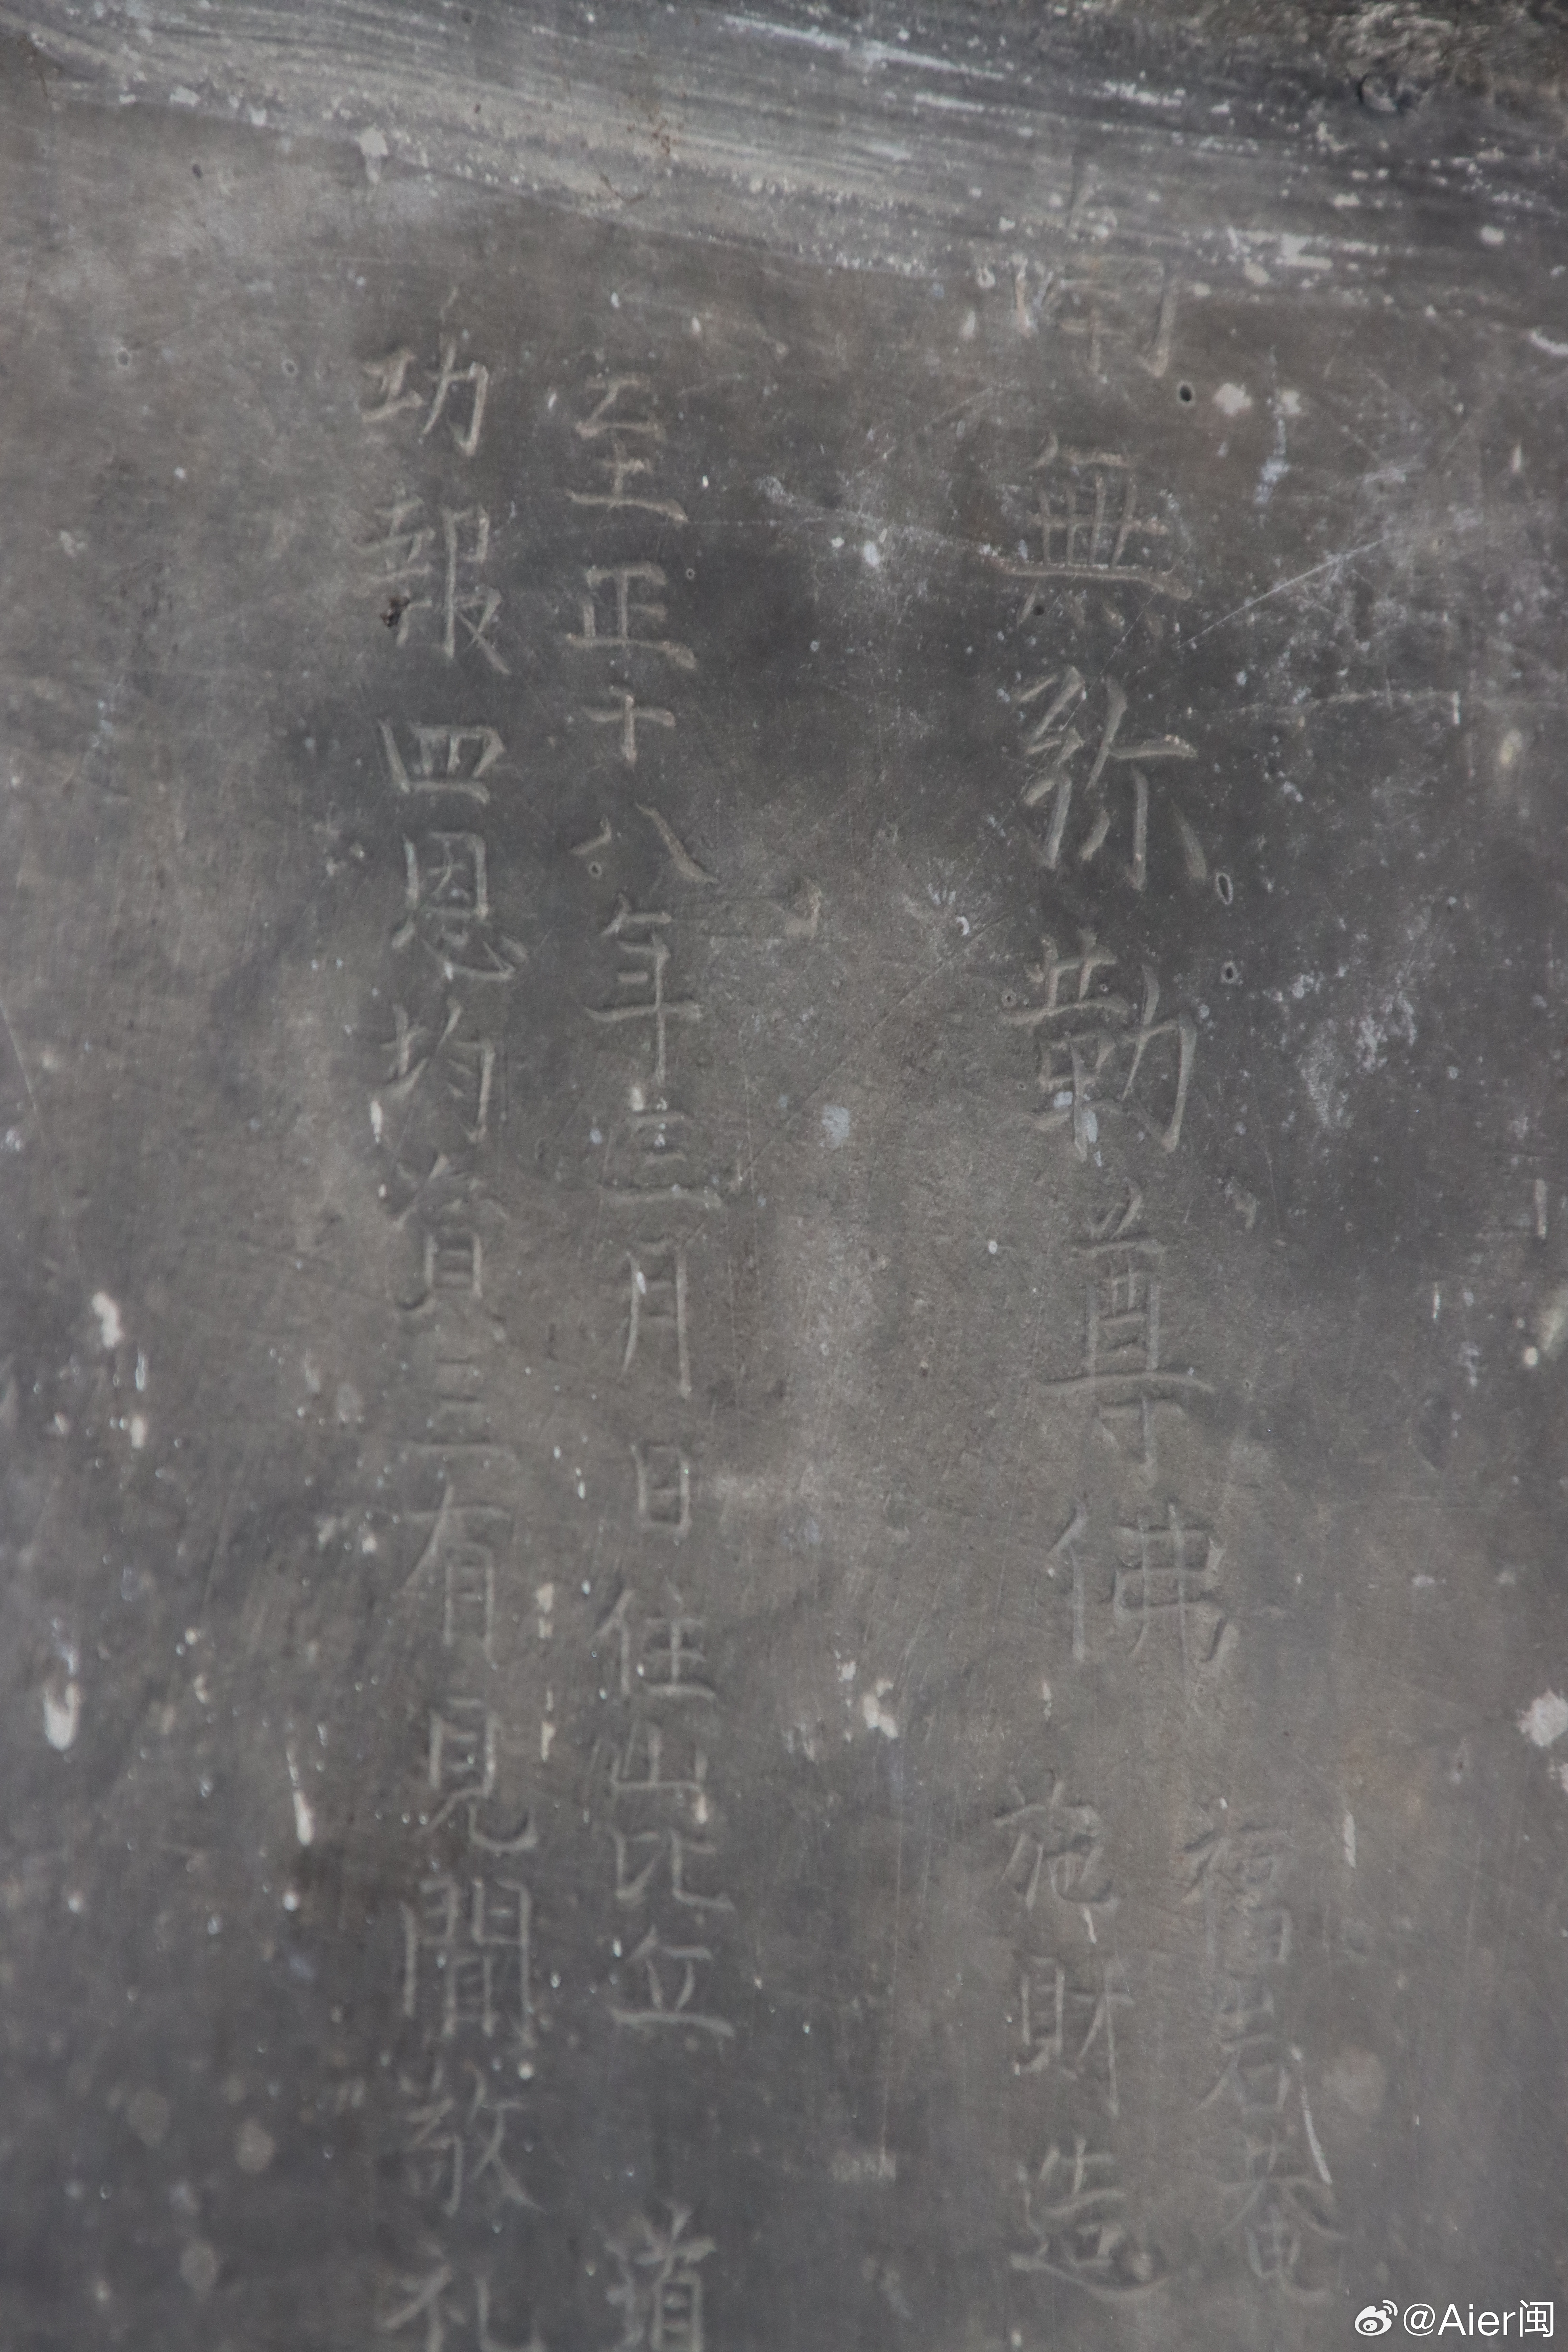 南無弥勒尊佛
福岩菴
施財造
至正十八年三月日住山比丘 道
功報四恩均資三有見聞敬礼
@Aier闽